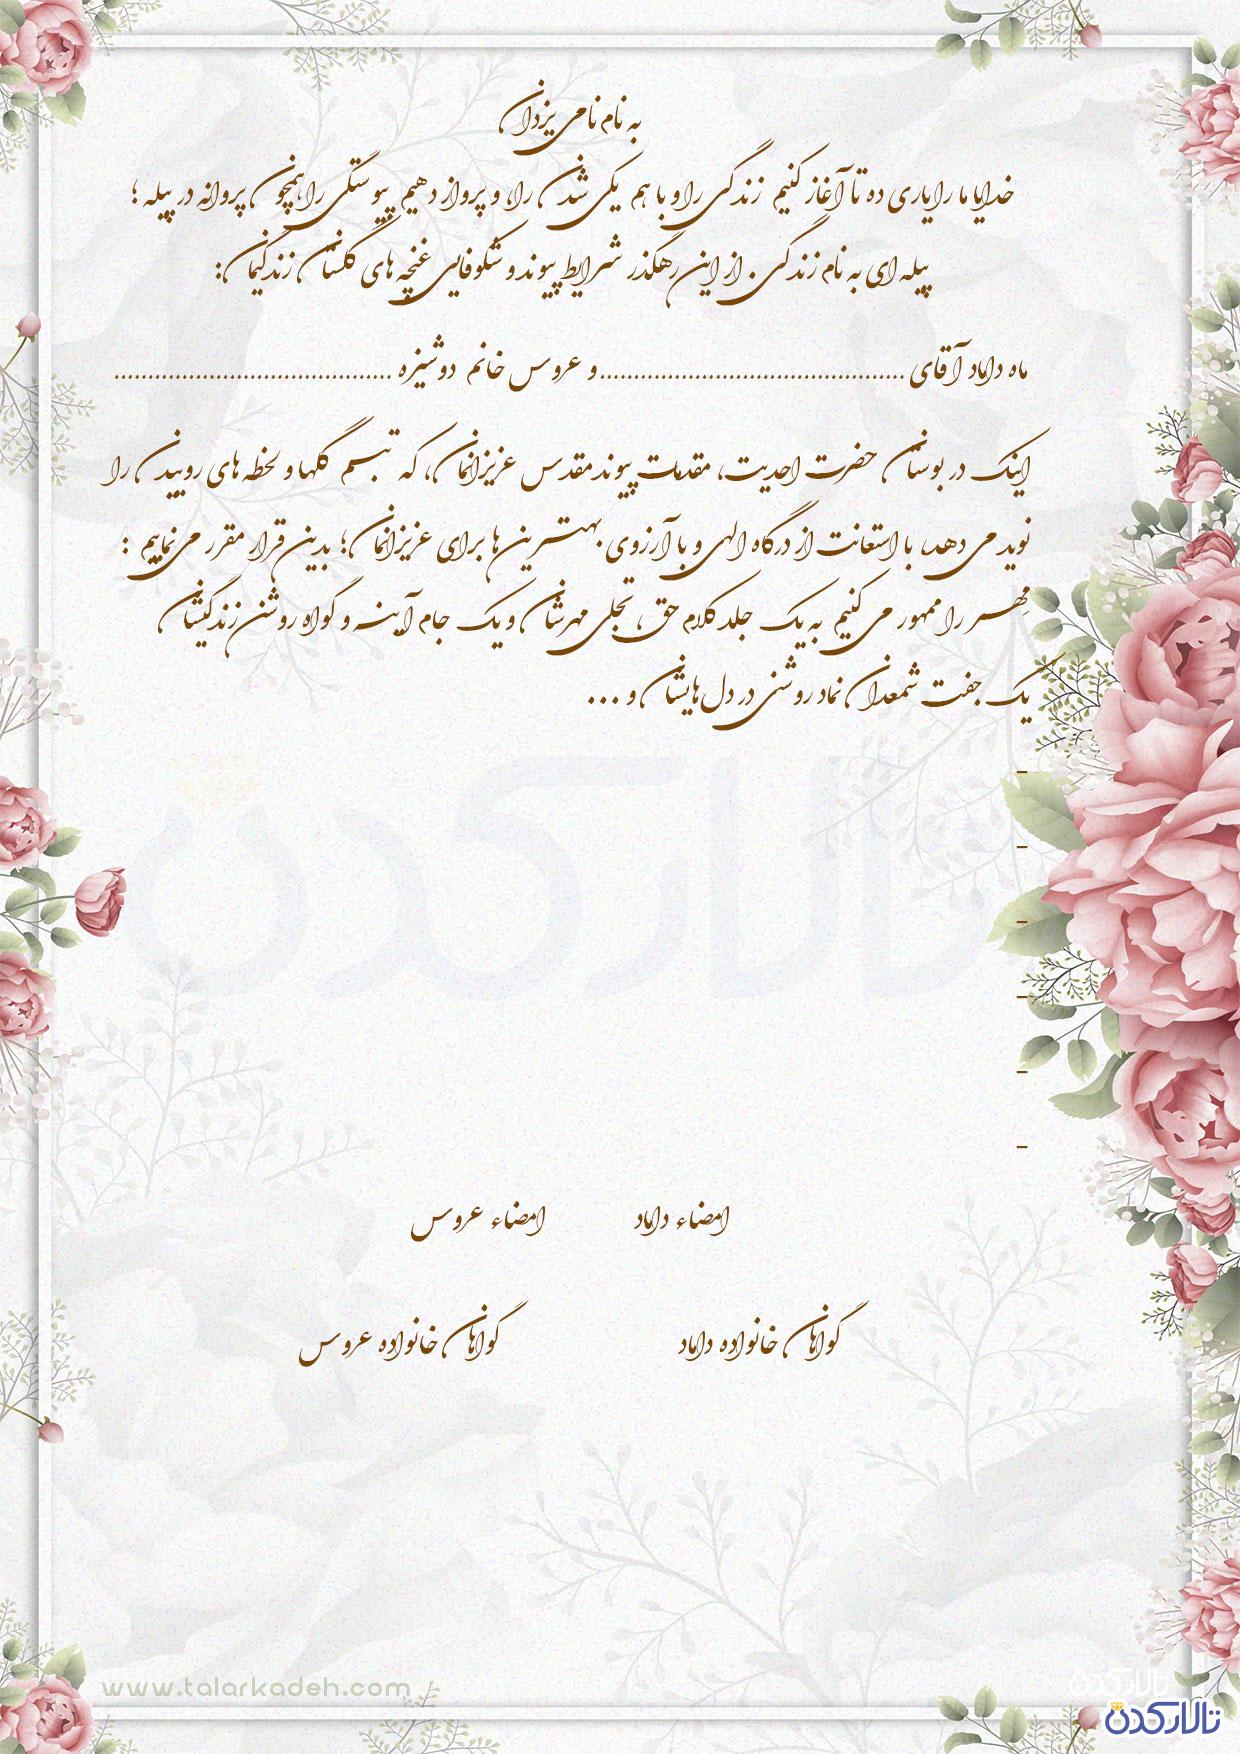 به نام نامی یزدان
خدایا ما را یاری ده تا آغاز کنیم زندگی را و با هم یکی شدن را، و پرواز دهیم پیوستگی را همچون پروانه در پیله ؛
پیله ای به نام زندگی . از این رهگذر شرایط پیوند و شکوفایی غنچه های گلستان زندگیمان:
ماه داماد آقای ............................................. و عروس خانم دوشیزه .........................................
اینک در بوستان حضرت احدیت، مقدمات پیوند مقدس عزیزانمان، که تبسم گلها و لحظه های روییدن را
نوید می دهد، با استعانت از درگاه الهی و با آرزوی بهترین‌ها برای عزیزانمان؛ بدین قرار مقرر می‌نماییم :
مِهر را ممهور می کنیم به یک جلد کلام حق، تجلی مهرشان و یک جام آینه و گواه روشن زندگیشان
یک جفت شمعدان نماد روشنی در دل‌هایشان و ...
-
-
-
-
-
-
امضاء داماد امضاء عروس
گواهان خانواده داماد گواهان خانواده عروس
www.talarkadeh.com
تالارکده